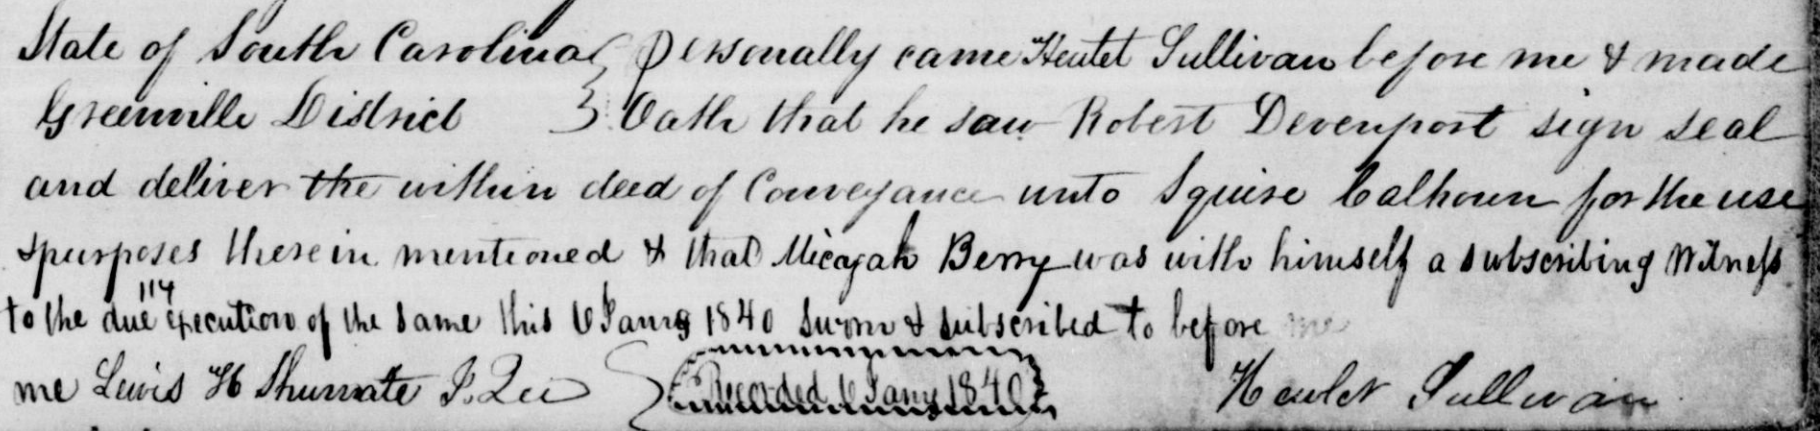 State of South Carolina } Personally came Hewlet Sullivan before me & made
Greenville District } Oath that he saw Robert Devenport sign seal
and deliver the within deed of Conveyance unto Squire Calhoun for the use
& purposes therein mentioned & that Micajah Berry was with himself a subscribing Witness
114
to the due execution of the same this 6 Jany 1840 Sworn & subscribed to before me
me Lewis H Shumate J. Q. } Recorded 6 Jany 1840 Hewlet Sullivan